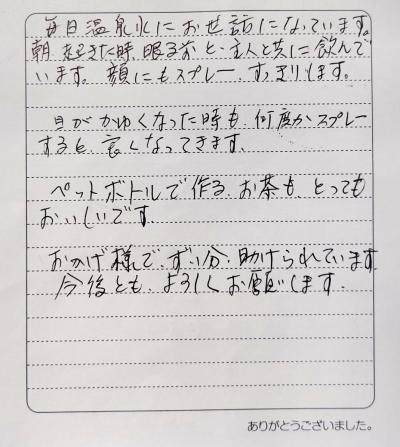 毎日温泉水にお世話になっています。
朝起きた時、眠る前と、主人と共に飲んで
います。顔にもスプレー、すっきりします。
目がかゆくなった時も、何度かスプレー
すると良くなってきます。
ペットボトルで作る、お茶も、とっても
おいしいです。
おかげ様で、ずい分、助けられています
今後とも、よろしくお願いします.
ありがとうございました。